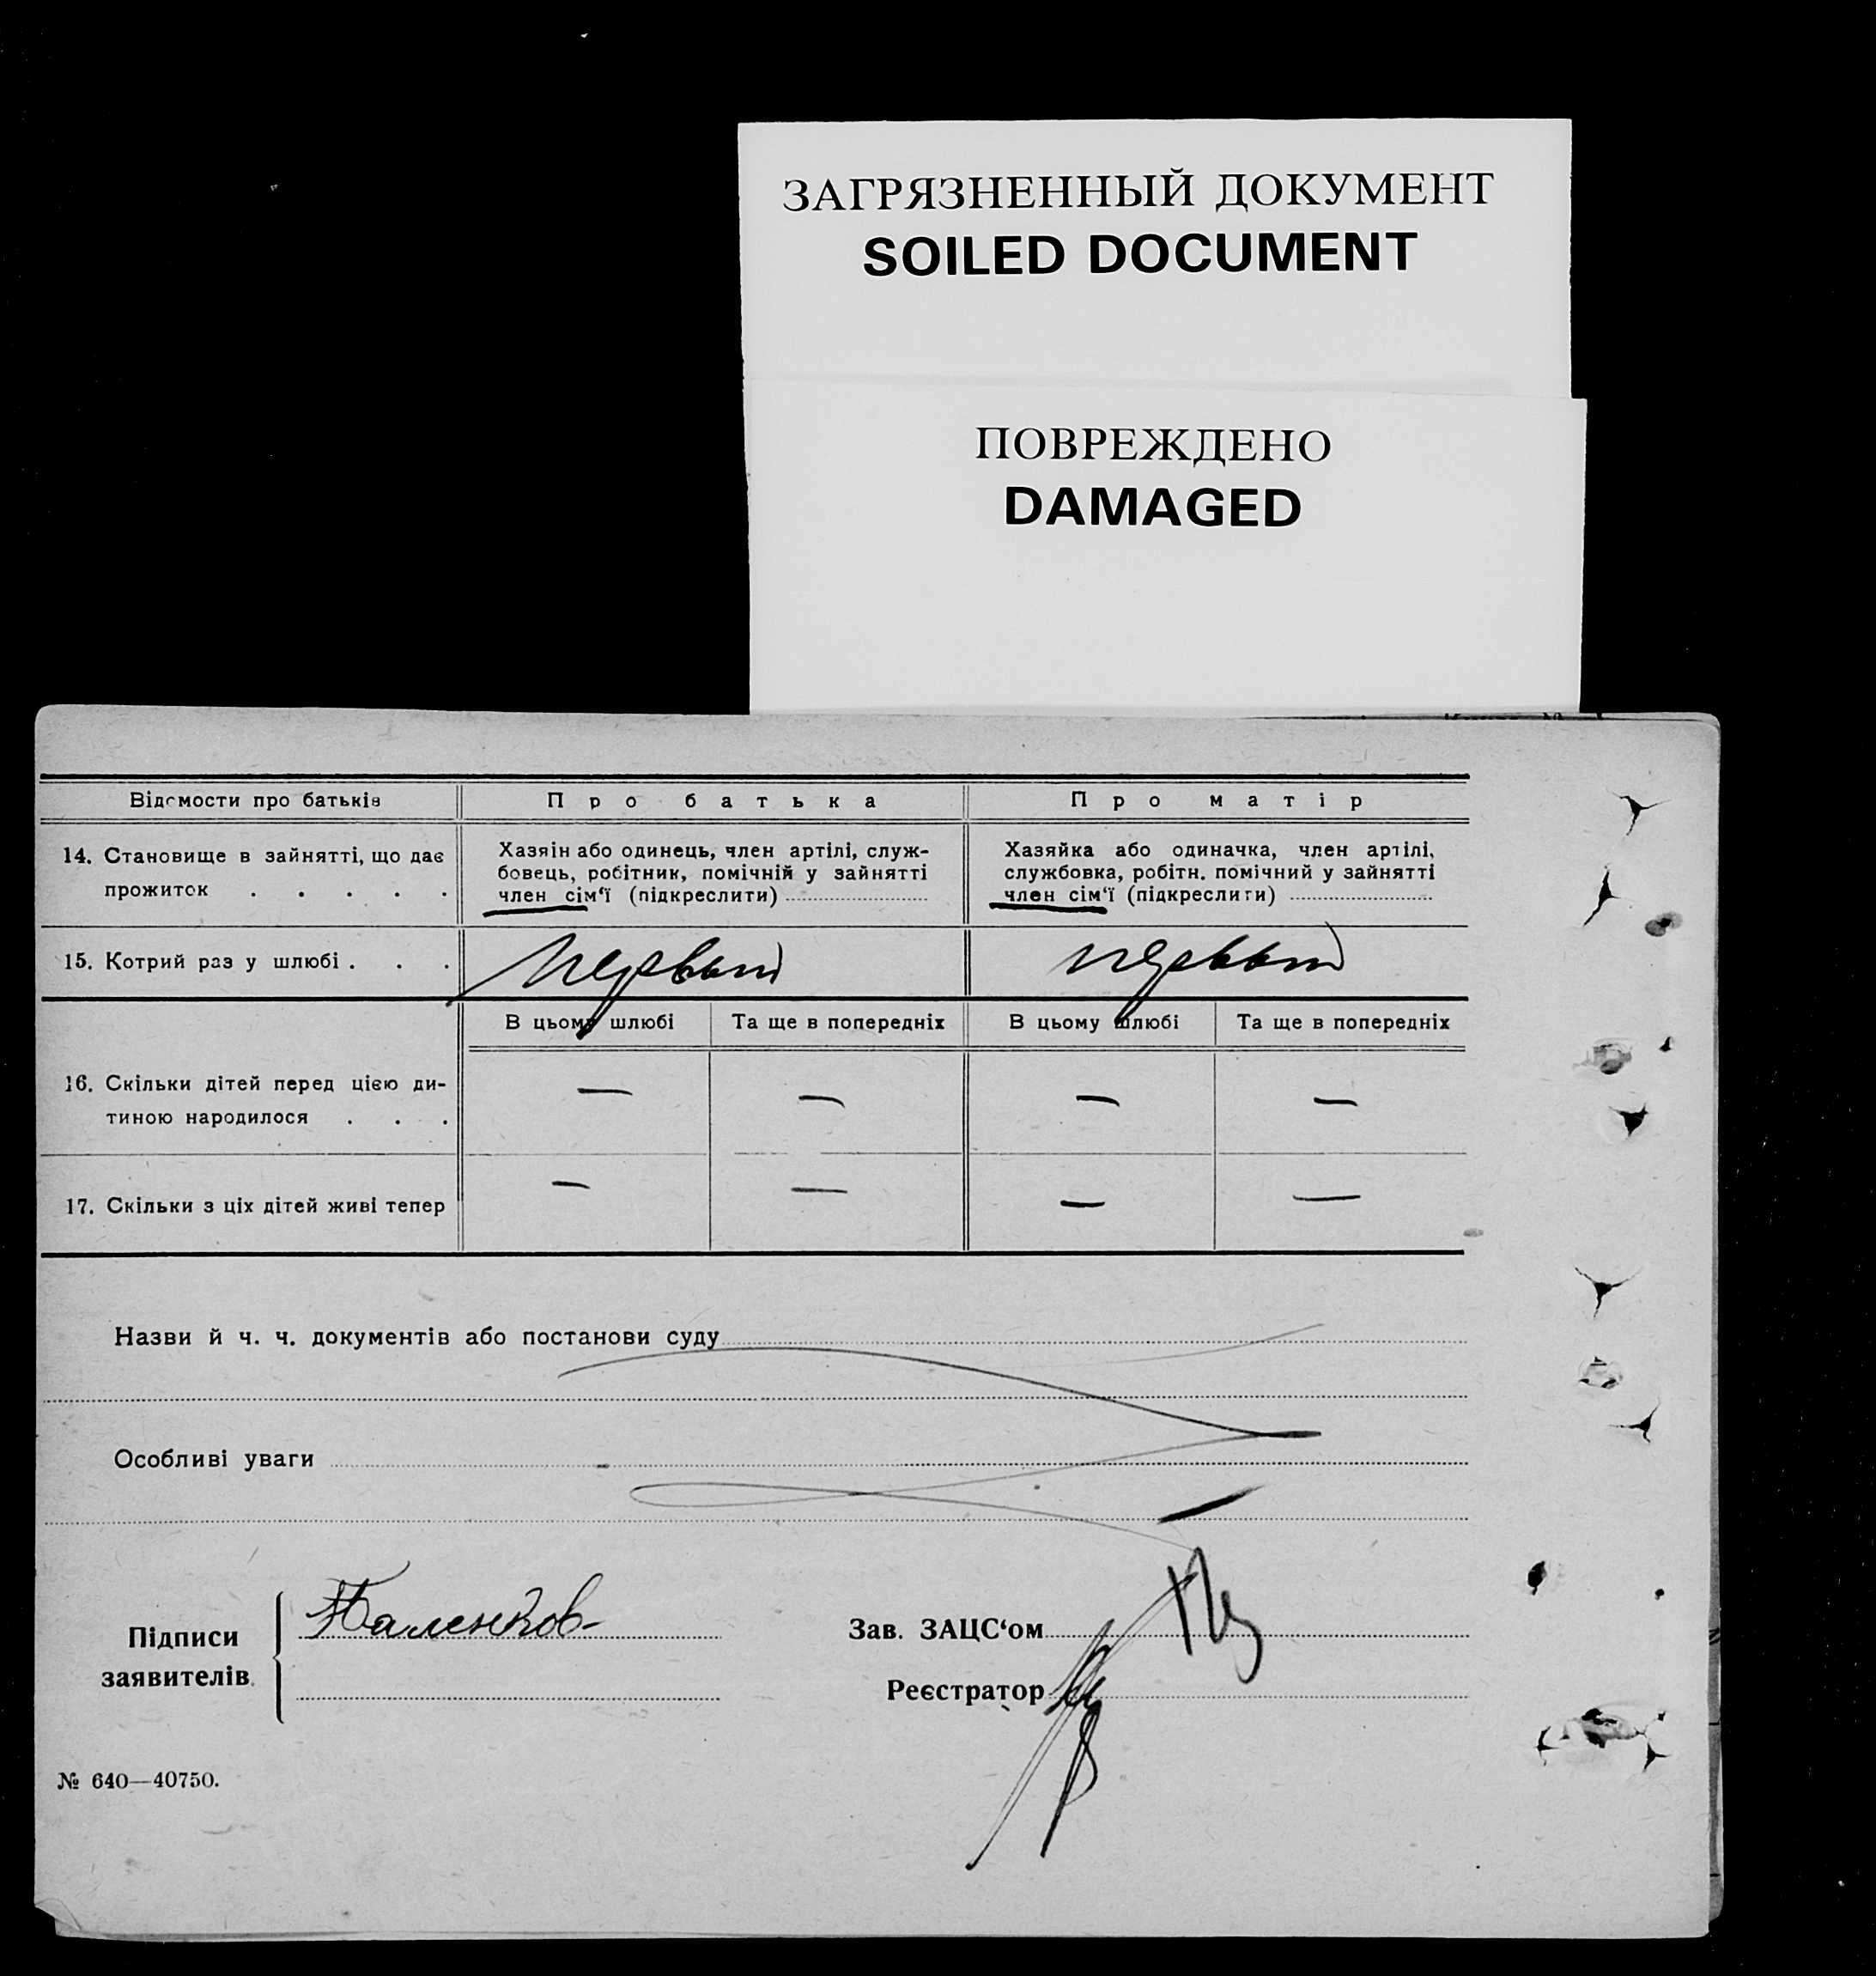 ЗАГРЯЗНЕННЫЙ ДОКУМЕНТ
SOILED DOCUMENT
ПОВРЕЖДЕНО
DAMAGED
Відомости про батьків Про батька Про матір
14. Становище в зайнятті, що дає прожиток . . . . .
Хазяін або одинець, член артілі, служ-
бовець, робітник, помічній у зайнятті
член сім‘ї (підкреслити)
Хазяйка або одиначка, член артілі,
службовка, робітн. помічний у зайнятті
член сім‘ї (підкреслити)
15. Котрий раз у шлюбі . . . первый первый
В цьому шлюбі Та ще в попередніх В цьому шлюбі Та ще в попередніх
16. Скільки дітей перед цією ди-
тиною народилося . . . — — — —
17. Скільки з ціх дітей живі тепер — — — —
Назви й ч. ч. документів або постанови суду
Особливі уваги
Підписи
заявителів
Зав. ЗАЦС‘ом
Реєстратор
№ 640—40750.